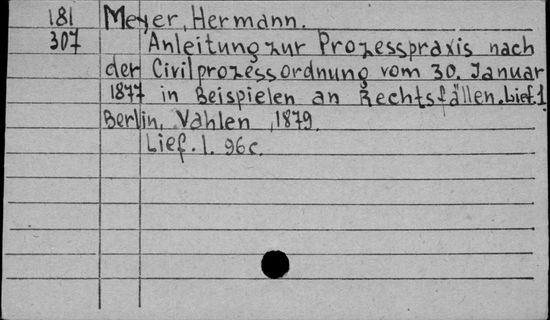 181 Meyer, Hermann.
307 Anleitung zur Prozesspraxis nach
der Civilprozessordnung vom 30. Januar
1877 in Beispielen an Rechtsfällen. Lief. 1
Berlin, Vahlen, 1879.
Lief. 1. 96 c.